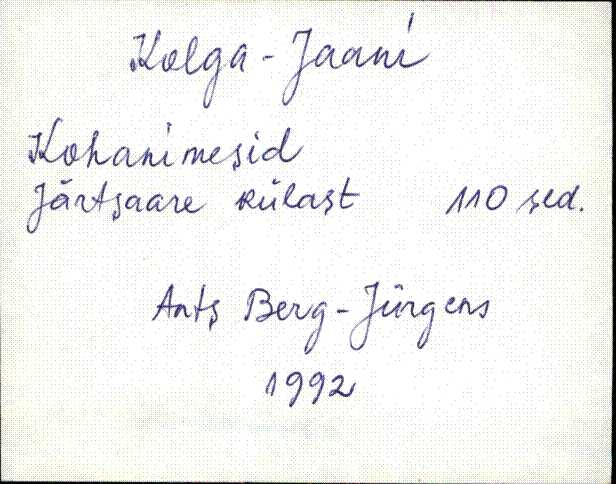 Kolga-Jaani
Kohanimesid
Järtsaare külast 110 sed.
Ants Berg-Jürgens
1992